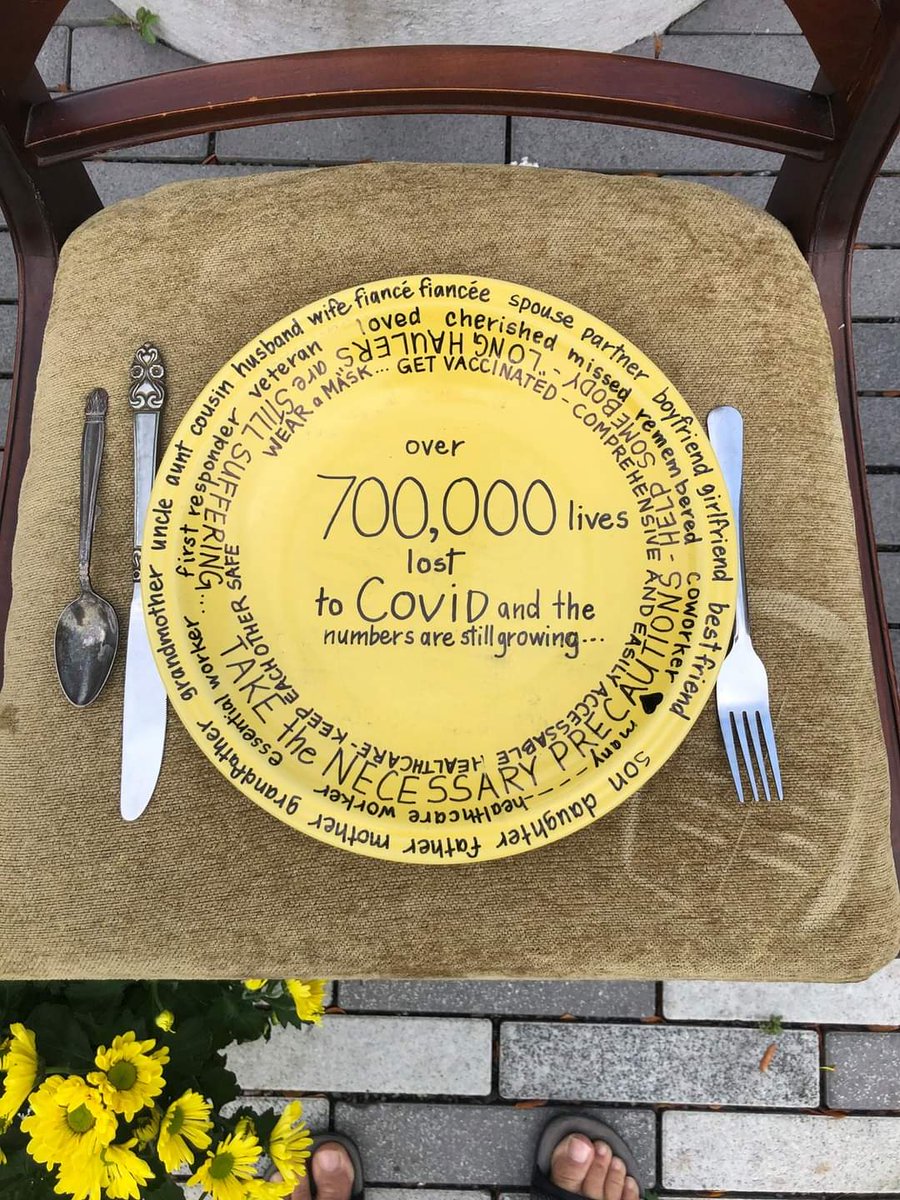 son daughter father mother grandfather grandmother uncle aunt cousin husband wife fiancé fiancée spouse partner boyfriend girlfriend best friend
many ---- healthcare worker essential worker... first responder veteran loved cherished missed remembered coworker ♥
TAKE the NECESSARY PRECAUTIONS - HELP SOMEBODY - "LONG HAULERS" are STILL SUFFERING
WEAR a MASK... GET VACCINATED - COMPREHENSIVE AND EASILY ACCESSABLE HEALTHCARE - KEEP EACH OTHER SAFE
over
700,000 lives
lost
to Covid and the
numbers are still growing...